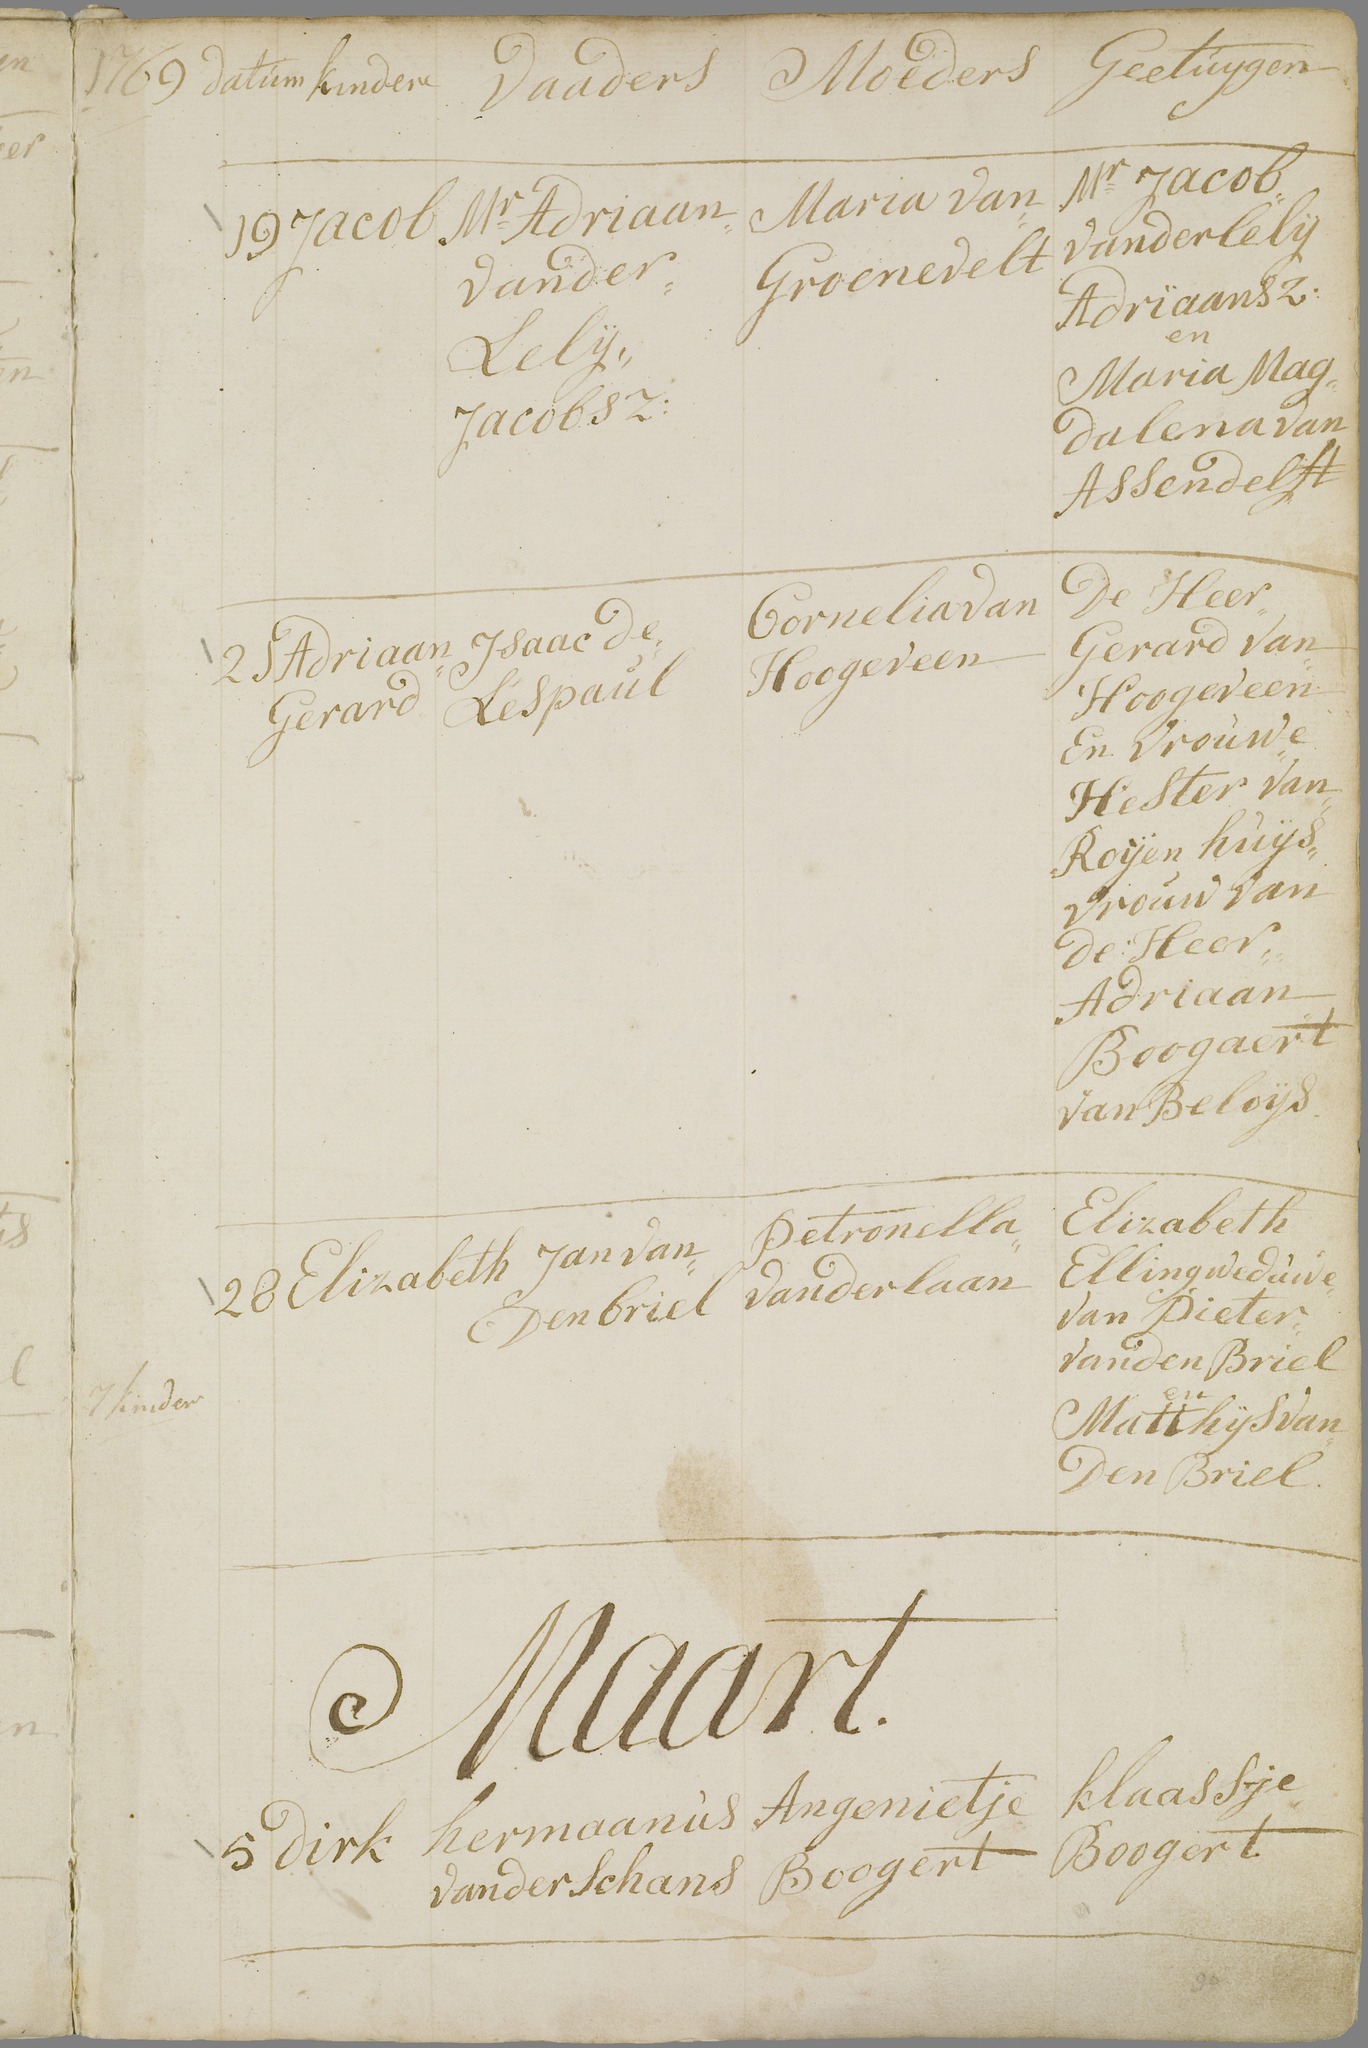 1769 datum kindere Vaaders Moeders Geetuygen
19 Jacob Mr. Adriaan„ Maria van„ Mr. Jacob„
vander„ Groenevelt vanderlelij
Lelij„ Adriaansz:
Jacobsz: en
Maria Mag„
dalena van
Assendelft
21 Adriaan„ Isaac de„ Cornelia van De Heer„
Gerard Lespaul Hoogeveen Gerard van„
Hoogeveen
En vrouwe
Hester van„
Roijen huijs„
vrouw van
de: Heer„
Adriaan
Boogaert
van Beloijs
28 Elizabeth Jan van„ Petronella„ Elizabeth
Den briel vanderlaan Elling weduwe„
van Pieter„
vanden Briel
7 kinder en
Matthijs van„
Den Briel.
Maart.
5 Dirk hermaanus Angenietje klaassje
vander Schans Boogert Boogert